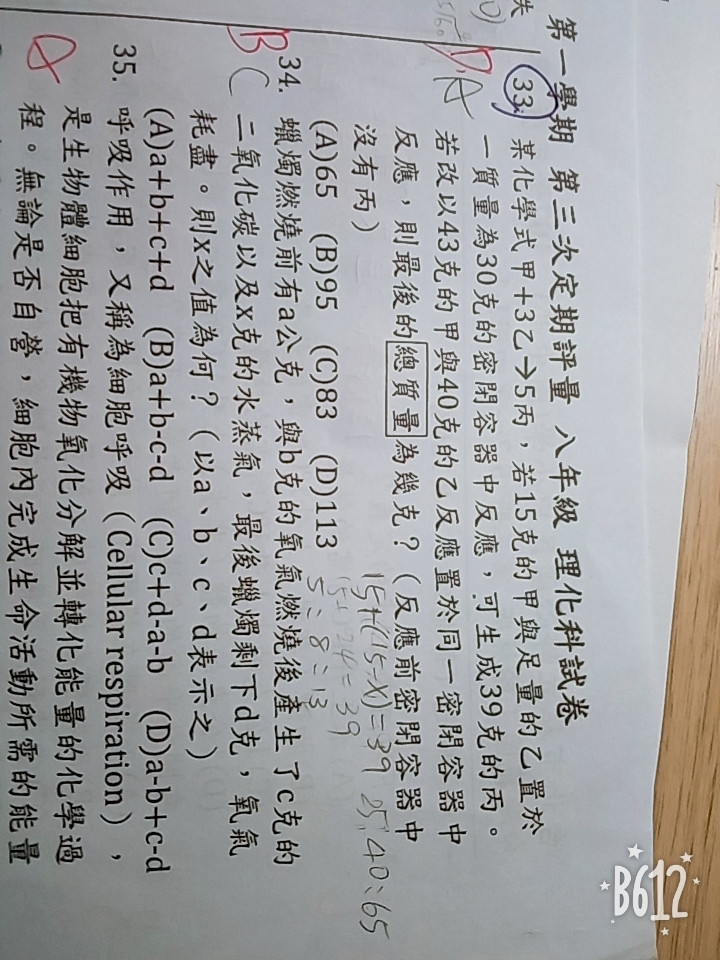 失
第一學期 第三次定期評量 八年級 理化科試卷
D A
33. 某化學式甲+3乙→5丙，若15克的甲與足量的乙置於
一質量為30克的密閉容器中反應，可生成39克的丙。
若改以43克的甲與40克的乙反應置於同一密閉容器中
反應，則最後的總質量為幾克？（反應前密閉容器中
沒有丙）
15+(15-X)=39 25:40:65
24=39
(A)65 (B)95 (C)83 (D)113
5:8:13
B C
34. 蠟燭燃燒前有a公克，與b克的氧氣燃燒後產生了c克的
二氧化碳以及x克的水蒸氣，最後蠟燭剩下d克，氧氣
耗盡。則x之值為何？（以a、b、c、d表示之）
(A)a+b+c+d (B)a+b-c-d (C)c+d-a-b (D)a-b+c-d
35. 呼吸作用，又稱為細胞呼吸（Cellular respiration），
是生物體細胞把有機物氧化分解並轉化能量的化學過
程。無論是否自營，細胞內完成生命活動所需的能量
B612